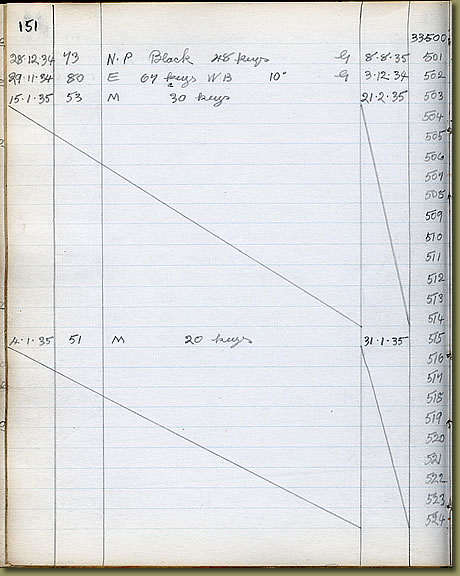 151
33500
28.12.34 73 N.P Black 48 keys G 8.8.35 501
29.11.34 80 E 67 keys W B 10" G 3.12.34 502
15.1.35 53 M 30 keys 21.2.35 503
504
505
506
507
508
509
510
511
512
513
514
4.1.35 51 M 20 keys 31.1.35 515
516
517
518
519
520
521
522
523
524